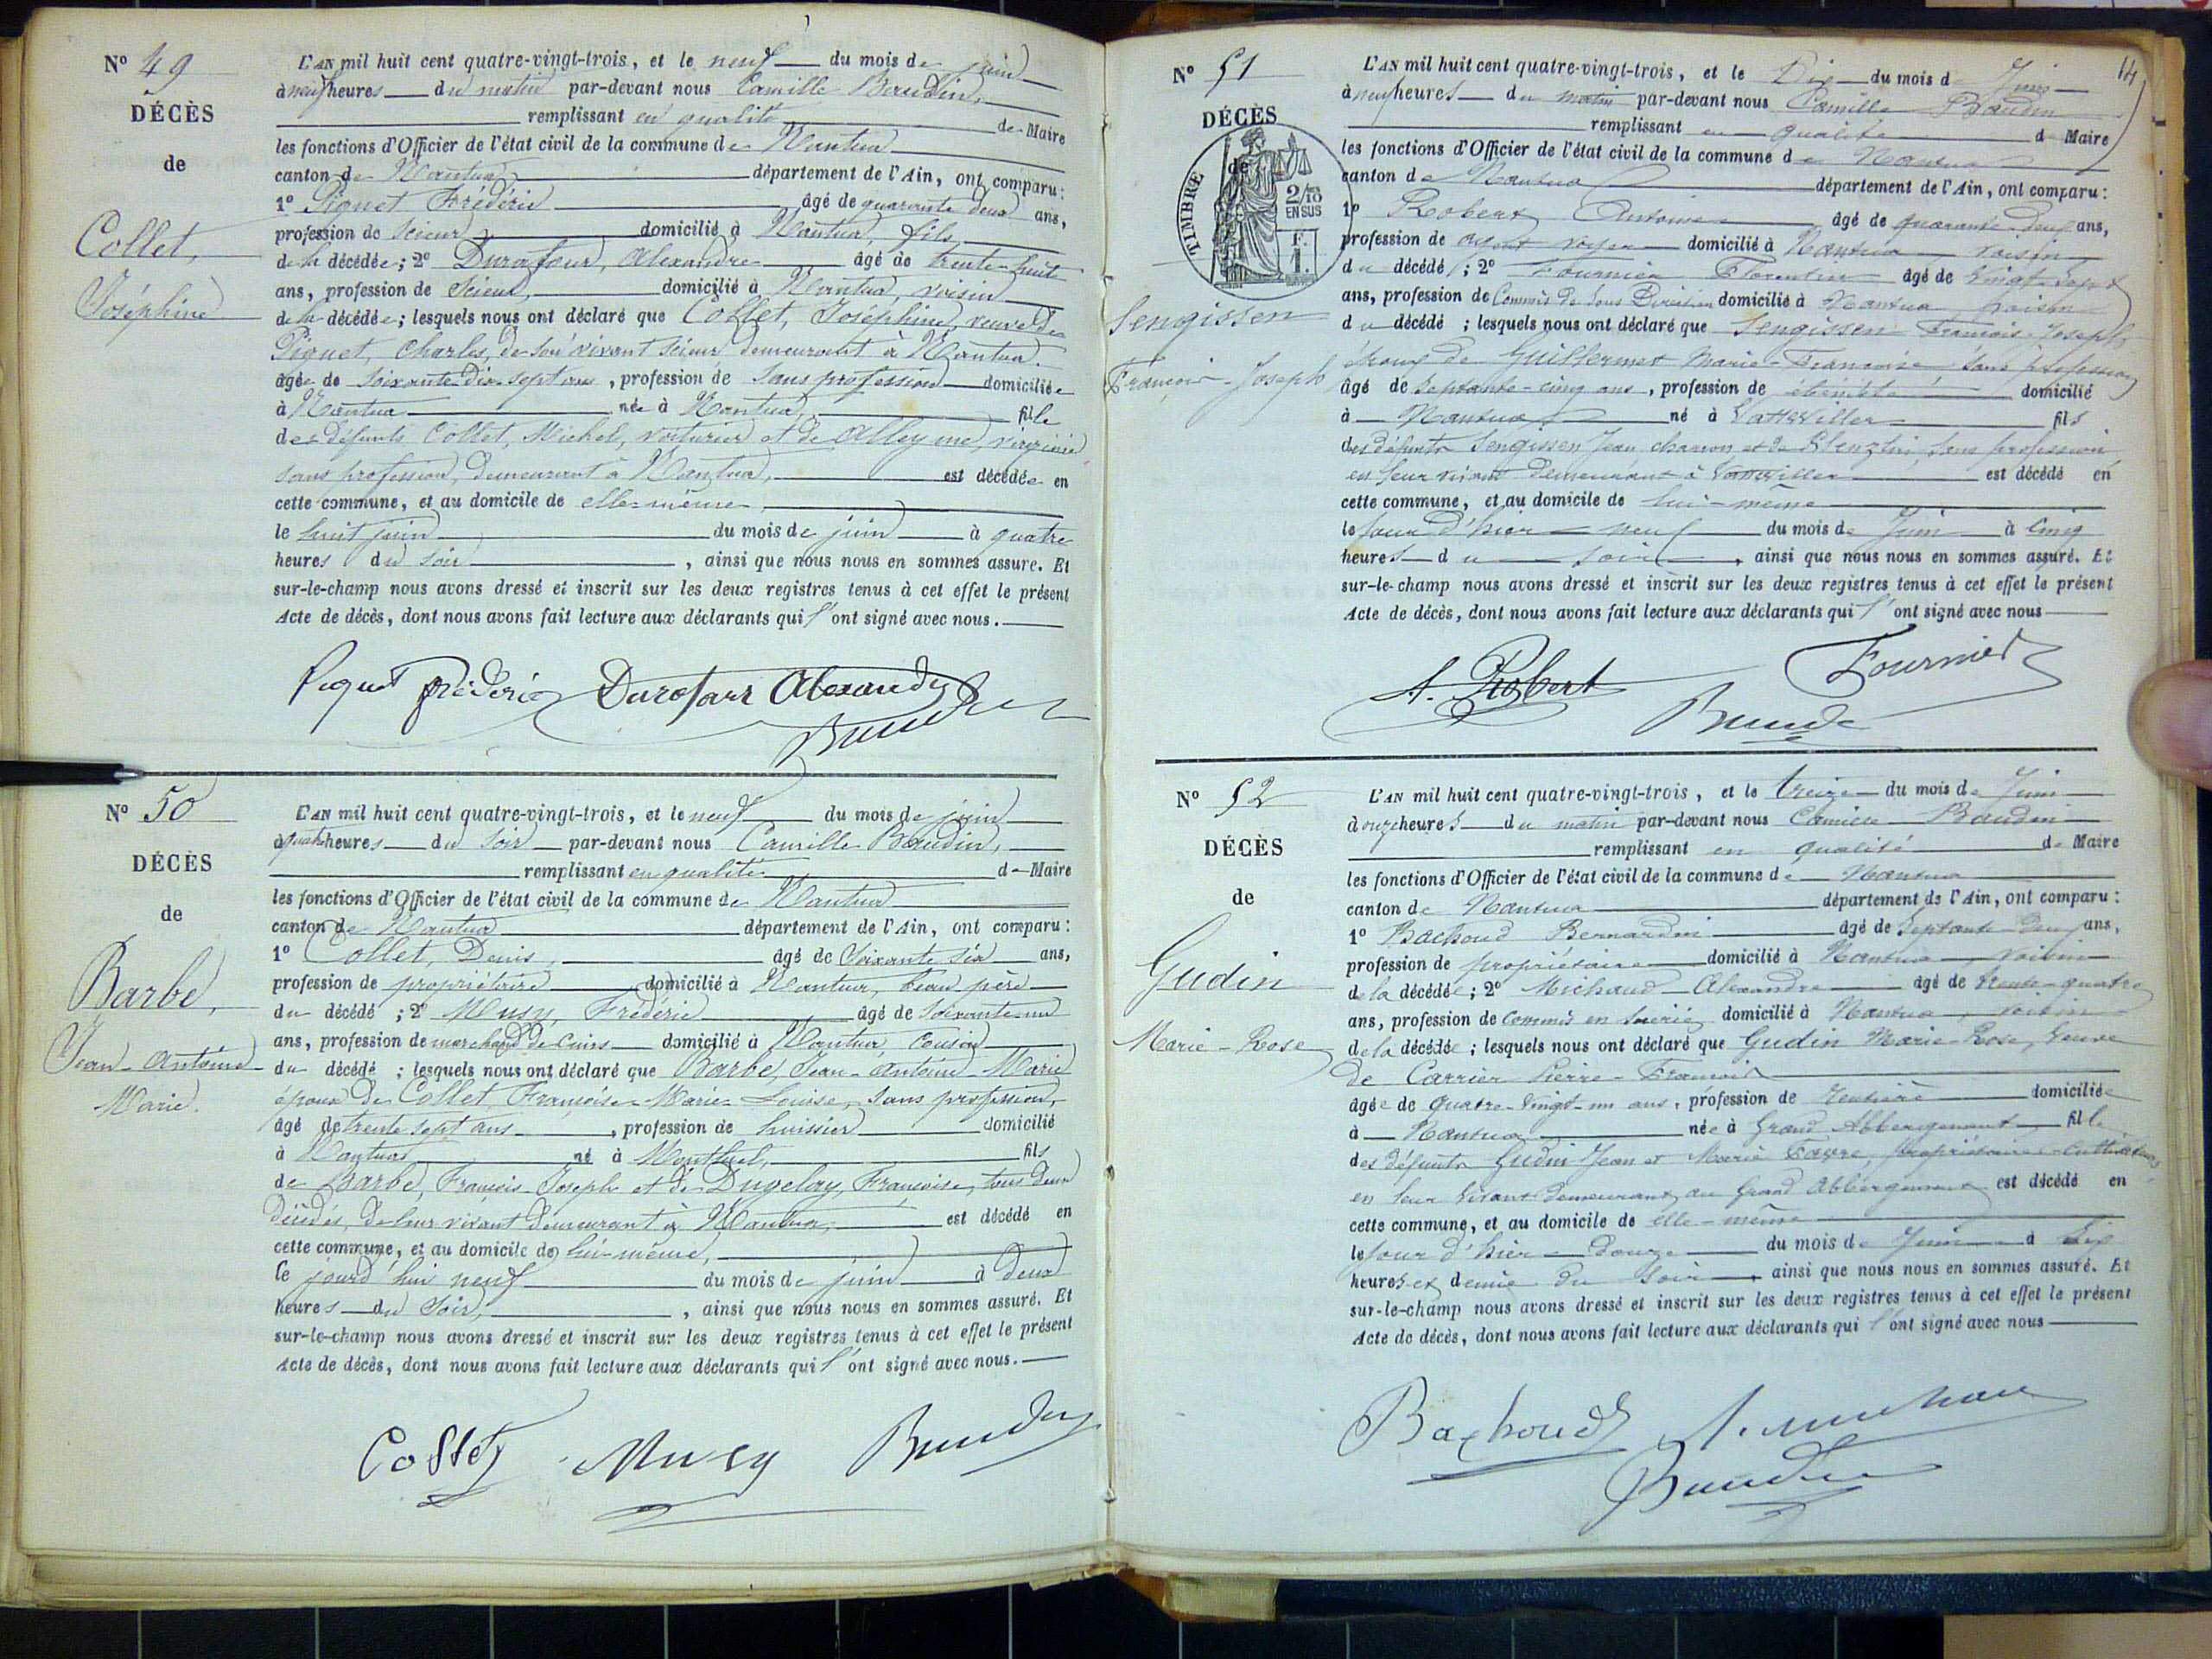 N° 49
DÉCÈS
de
Collet,
Joséphine
L'AN mil huit cent quatre-vingt-trois, et le neuf du mois de juin
à neuf heures du matin par-devant nous Camille Baudin,
remplissant en qualité de Maire
les fonctions d'Officier de l'état civil de la commune de Nantua
canton de Nantua département de l'Ain, ont comparu:
1° Piquet Frédéric âgé de quarante deux ans,
profession de scieur domicilié à Nantua, fils
de la décédée; 2° Durafour, Alexandre âgé de trente-huit
ans, profession de scieur, domicilié à Nantua, voisin
de la décédée; lesquels nous ont déclaré que Collet, Joséphine, veuve de
Piquet, Charles, de son vivant scieur demeurant à Nantua
âgée de soixante-dix-sept ans, profession de sans profession domiciliée
à Nantua née à Nantua, fille
des défunts Collet, Michel, voiturier et de Alleyme, virginie
sans profession, demeurant à Nantua, est décédée en
cette commune, et au domicile de elle-même,
le huit juin du mois de juin à quatre
heures du soir, ainsi que nous nous en sommes assuré. Et
sur-le-champ nous avons dressé et inscrit sur les deux registres tenus à cet effet le présent
Acte de décès, dont nous avons fait lecture aux déclarants qui l'ont signé avec nous.
Piquet frédéric Durafour Alexandre
Baudin
N° 50
DÉCÈS
de
Barbe,
Jean-Antoine-
Marie.
L'AN mil huit cent quatre-vingt-trois, et le neuf du mois de juin
à quatre heures du soir par-devant nous Camille Baudin,
remplissant en qualité de Maire
les fonctions d'Officier de l'état civil de la commune de Nantua
canton de Nantua département de l'Ain, ont comparu:
1° Collet, Denis, âgé de soixante six ans,
profession de propriétaire domicilié à Nantua, beau père
du décédé; 2° Musy, Frédéric âgé de soixante-un
ans, profession de marchand de cuirs domicilié à Nantua, cousin
du décédé; lesquels nous ont déclaré que Barbe, Jean-Antoine-Marie
époux de Collet, Françoise-Marie-Louise, sans profession,
âgé de trente sept ans, profession de huissier domicilié
à Nantua né à Montluel, fils
de Barbe, François-Joseph et de Dugelay, Françoise, tous deux
décédés, de leur vivant demeurant à Nantua, est décédé en
cette commune, et au domicile de lui-même,
le jourd'hui neuf du mois de juin à deux
heures du soir, ainsi que nous nous en sommes assuré. Et
sur-le-champ nous avons dressé et inscrit sur les deux registres tenus à cet effet le présent
Acte de décès, dont nous avons fait lecture aux déclarants qui l'ont signé avec nous.
Collet Musy Baudin
14
N° 51
DÉCÈS
de
TIMBRE
2/10
EN SUS
F.
1.
Sengissen
François-Joseph
L'AN mil huit cent quatre-vingt-trois, et le Dix du mois de Juin
à neuf heures du matin par-devant nous Camille Baudin
remplissant en qualité de Maire
les fonctions d'Officier de l'état civil de la commune de Nantua
canton de Nantua département de l'Ain, ont comparu:
1° Robert Antoine âgé de quarante-deux ans,
profession de agent voyer domicilié à Nantua voisin
du décédé; 2° Fournier Florentin âgé de vingt-sept
ans, profession de Commis de Sous Direction domicilié à Nantua voisin
du décédé; lesquels nous ont déclaré que Sengissen François-Joseph
époux de Guillermet Marie-Françoise sans profession
âgé de septante-cinq ans, profession de ébéniste domicilié
à Nantua né à Vattwiller fils
des défunts Sengissen Jean charron et de Stenzlin, sans profession
en leur vivant demeurant à Vattwiller est décédé en
cette commune, et au domicile de lui-même
le jour d'hier neuf du mois de Juin à Cinq
heures du soir, ainsi que nous nous en sommes assuré. Et
sur-le-champ nous avons dressé et inscrit sur les deux registres tenus à cet effet le présent
Acte de décès, dont nous avons fait lecture aux déclarants qui l'ont signé avec nous
A. Robert Fournier
Baudin
N° 52
DÉCÈS
de
Gudin
Marie-Rose
L'AN mil huit cent quatre-vingt-trois, et le treize du mois de Juin
à onze heures du matin par-devant nous Camille Baudin
remplissant en qualité de Maire
les fonctions d'Officier de l'état civil de la commune de Nantua
canton de Nantua département de l'Ain, ont comparu:
1° Bachoud Bernardin âgé de septante deux ans,
profession de propriétaire domicilié à Nantua voisin
de la décédée; 2° Michaud Alexandre âgé de trente-quatre
ans, profession de Commis en soierie domicilié à Nantua, voisin
de la décédée; lesquels nous ont déclaré que Gudin Marie-Rose, veuve
de Carrier Pierre-François
âgée de quatre-vingt-un ans, profession de Rentière domiciliée
à Nantua née à Grand Abbergement fille
des défunts Gudin Jean et Marie Favre, propriétaires-cultivateurs
en leur vivant demeurant au Grand Abbergement est décédé en
cette commune, et au domicile de elle-même
le jour d'hier douze du mois de Juin à six
heures et demie du soir, ainsi que nous nous en sommes assuré. Et
sur-le-champ nous avons dressé et inscrit sur les deux registres tenus à cet effet le présent
Acte de décès, dont nous avons fait lecture aux déclarants qui l'ont signé avec nous
Bachoud A. Michaud
Baudin